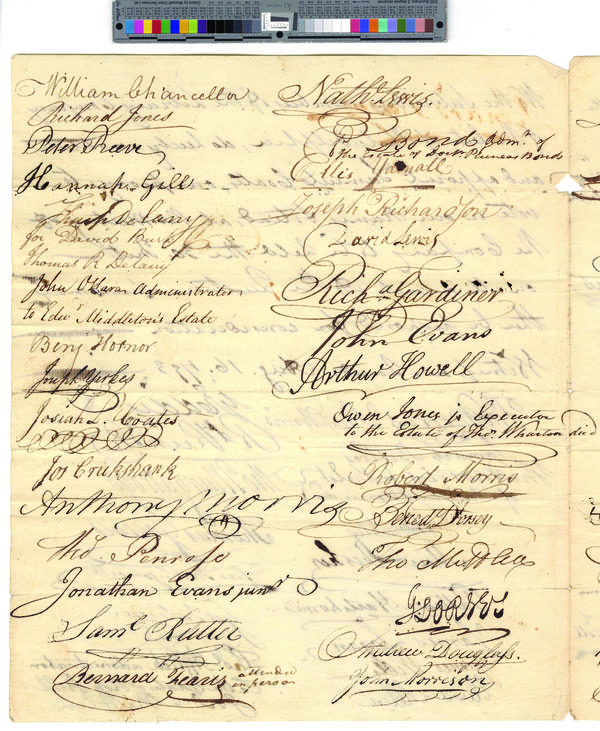 William Chancellor
Richard Jones
Peter Reeve
Hannah Gill
Delany
for David
Thomas R Delany
John Administrator
to Edwd Middleton's Estate
Benj Hornor
Joseph Yerkes
Josiah L. Coates
Jos Crukshank
Anthony Morris
Thos. Penrose
Jonathan Evans junr
Saml Rutter
Bernard attended
in person
Nathl Lewis.
Bond admr of
the Estate of Doctr Phineas Bond
Ellis Yarnall
Joseph Richardson
David Lewis
Richd Gardiner
John Evans
Arthur Howell
Owen Jones jr Executor
to the Estate of Thos Wharton decd
Robert Morris
Bened Dorsey
Tho
Andrew Douglass.
John Morrison